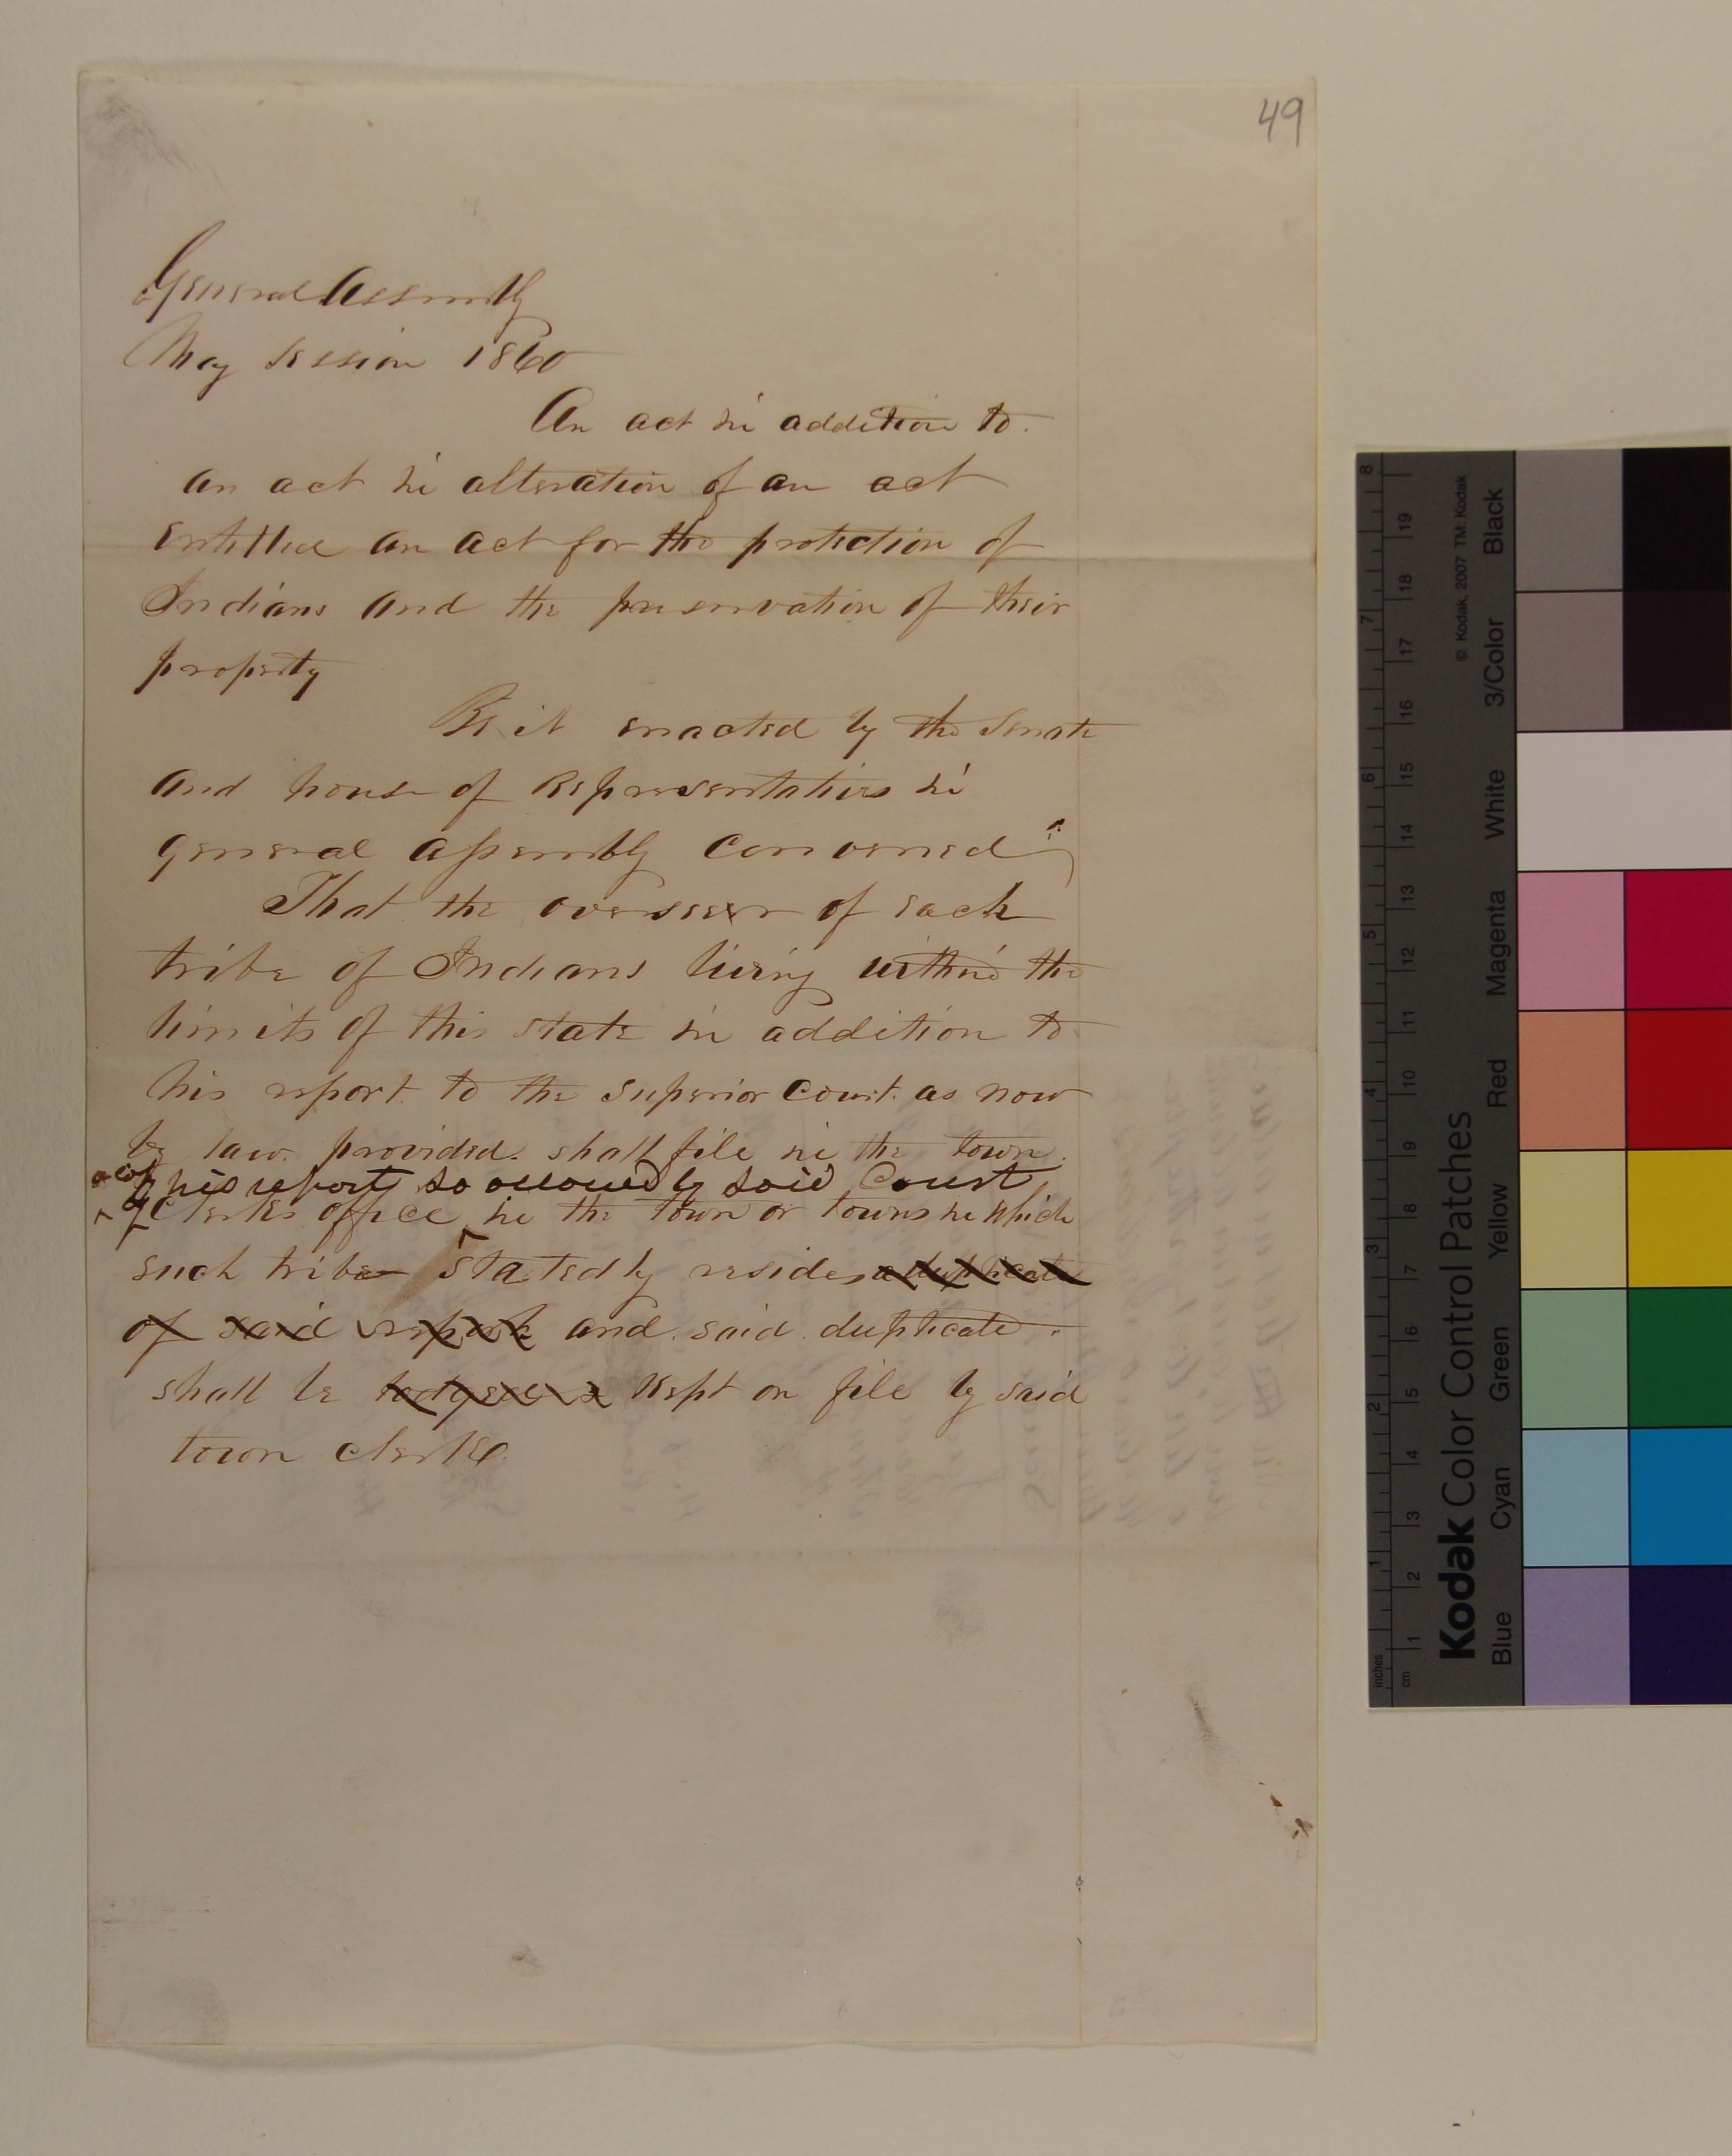 49
General Assembly
May Session 1860
An act in addition to
an act in alteration of an act
entitled an act for the protection of
Indians and the preservation of their
property
Be it enacted by the Senate
and house of Representatives in
general assembly convened
That the overseer of each
tribe of Indians living within the
limits of this state in addition to
his report to the Superior Court as now
by law provided shall file in the town
a copy of his report so allowed by said Court
Clerks office in the town or towns in which
such tribe statedly resides a duplicate
of said report and said duplicate
shall be lodged & kept on file by said
town clerke
© Kodak, 2007 TM: Kodak
Kodak Color Control Patches
Blue Cyan Green Yellow Red Magenta White 3/Color Black
inches 1 2 3 4 5 6 7 8
cm 1 2 3 4 5 6 7 8 9 10 11 12 13 14 15 16 17 18 19